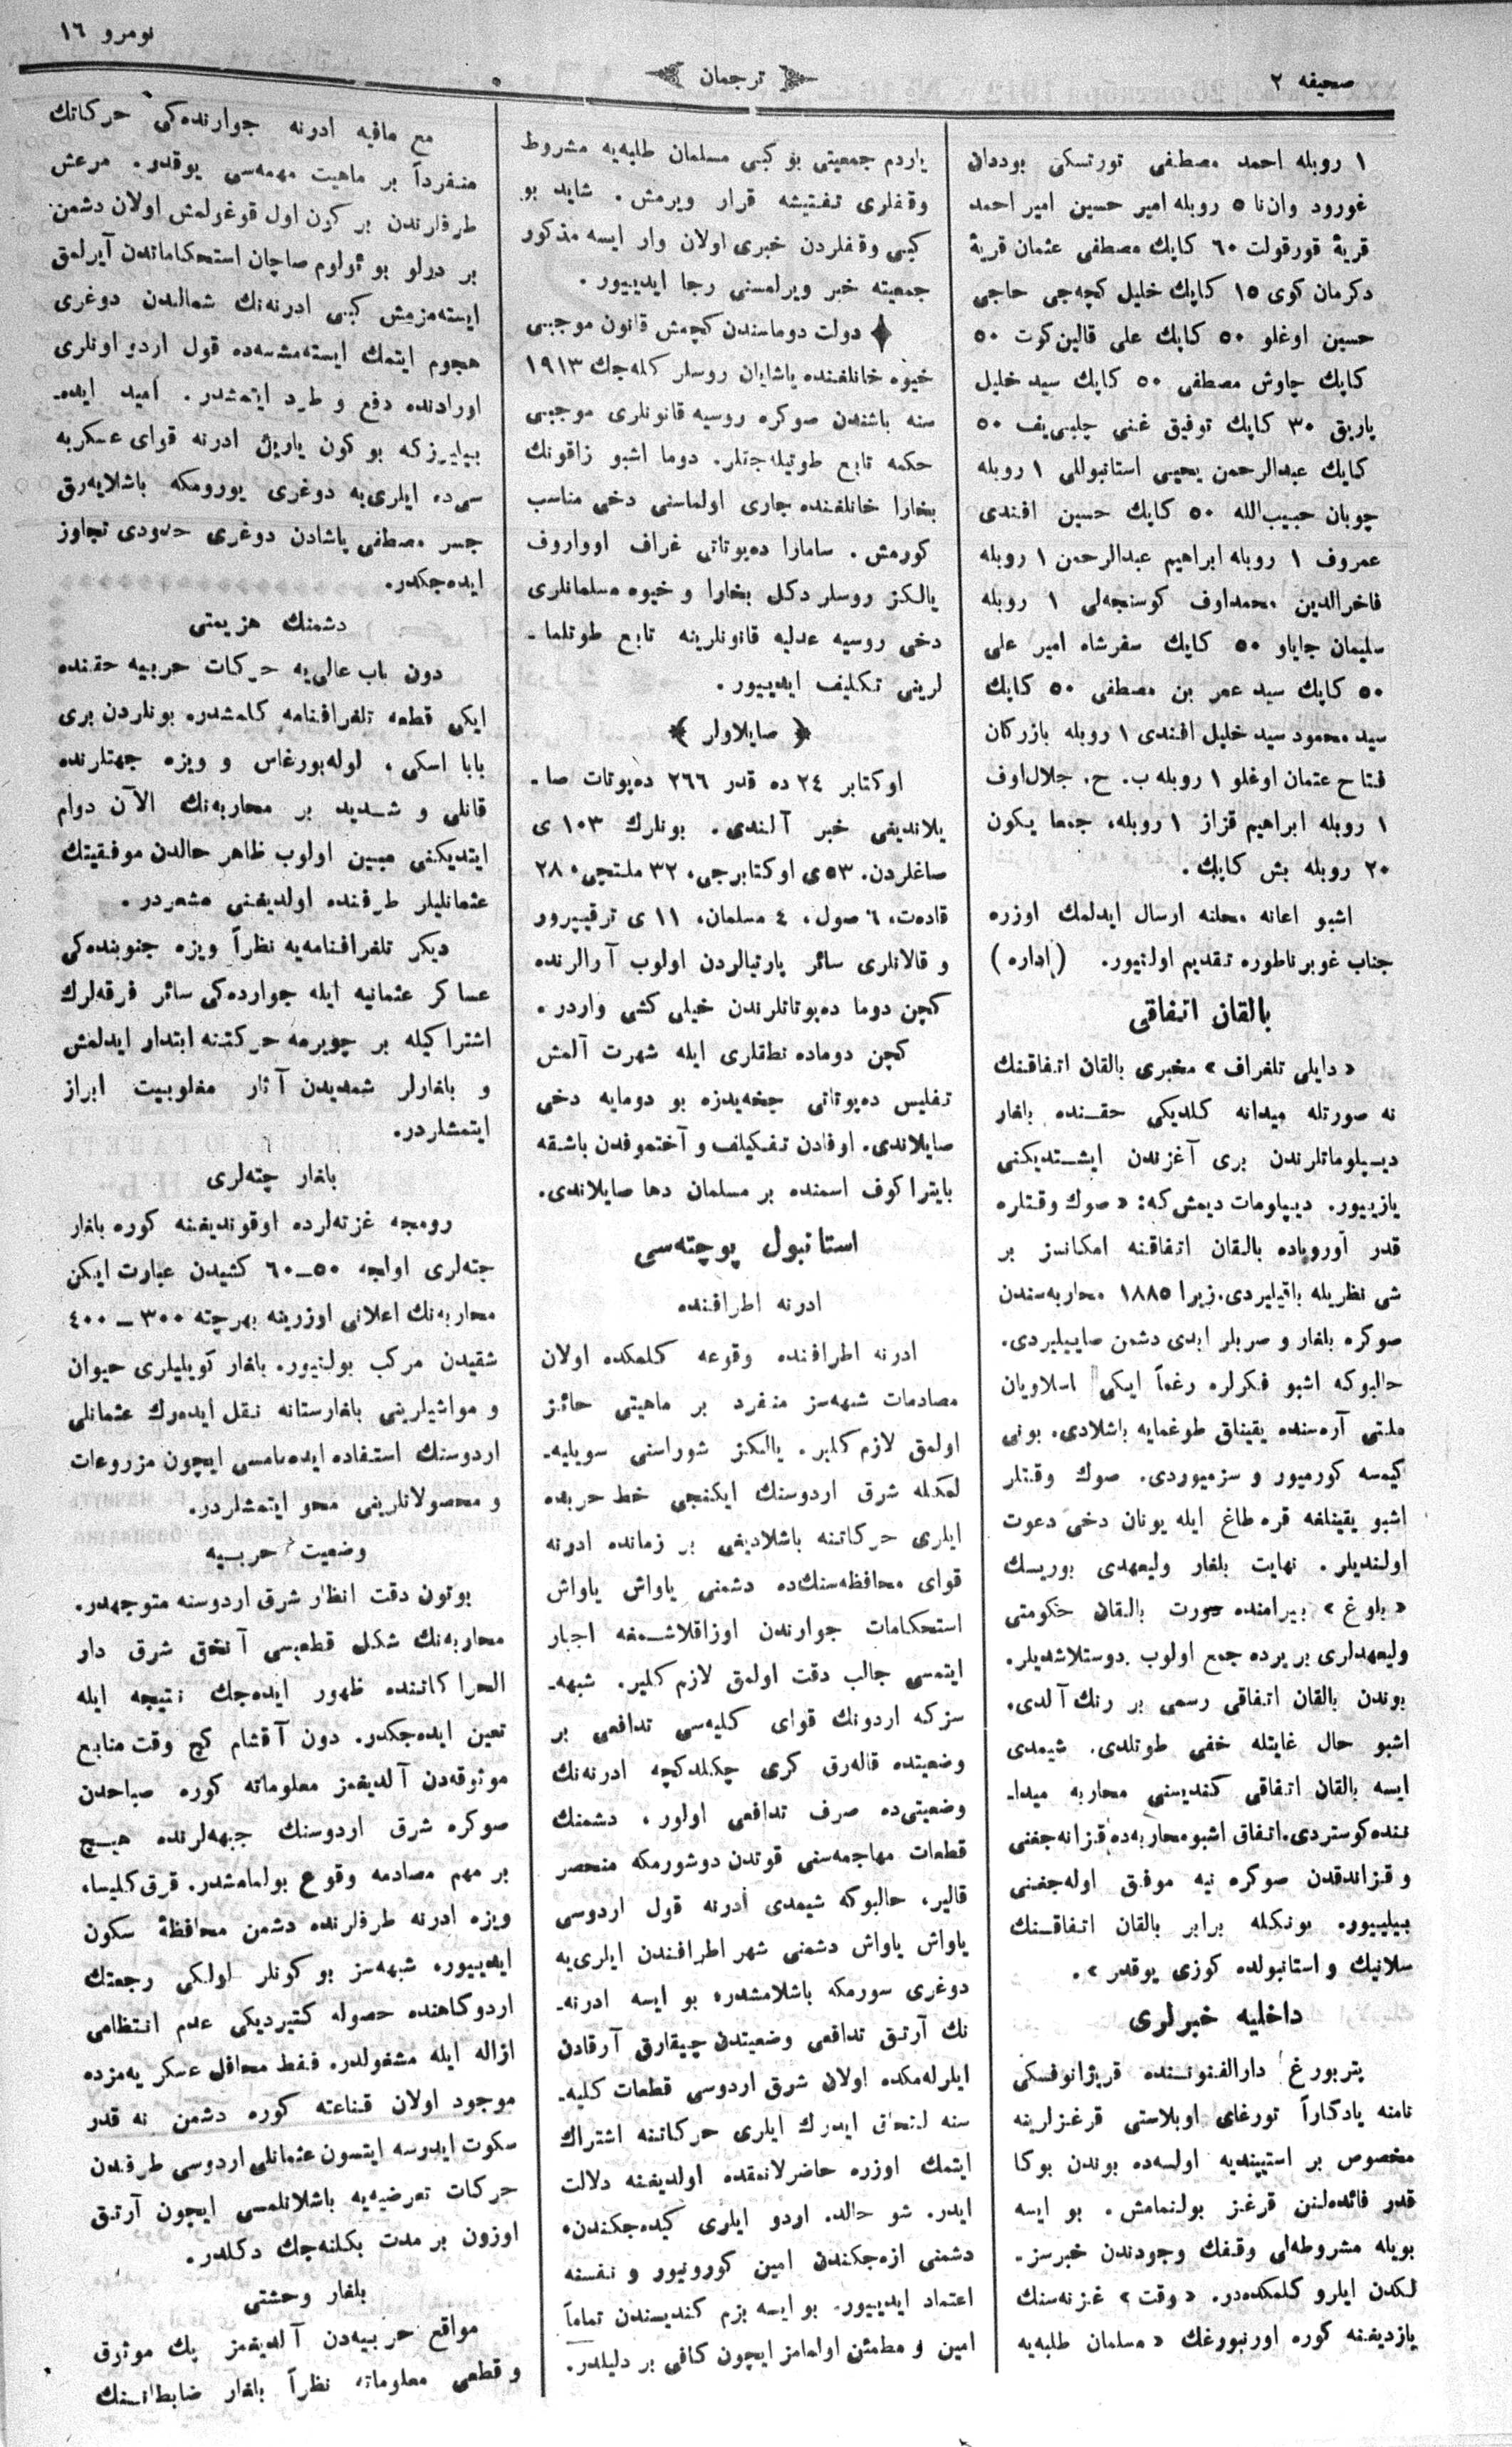 صحیفه ٢
ترجمان
نومرو ١٦
١ روبله احمد مصطفی تورتسکی بوددان
غورود وان‌نا ٥ روبله امیر حسین امیر احمد
قریهٔ قورقولت ٦٠ کاپك مصطفی عثمان قریهٔ
دکرمان کوی ١٥ کاپك خلیل کچه‌جی حاجی
حسین اوغلو ٥٠ کاپك علی قالین‌کوت ٥٠
کاپك چاوش مصطفی ٥٠ کاپك سید خلیل
یاریق ٣٠ کاپك توفیق غنی چلبی‌یف ٥٠
کاپك عبدالرحمن یحیی استانبوللی ١ روبله
چوبان حبیب‌الله ٥٠ کاپك حسین افندی
عمروف ١ روبله ابراهیم عبدالرحمن ١ روبله
فاخرالدین محمداوف کوسنجه‌لی ١ روبله
سلیمان جایاو ٥٠ کاپك سفرشاه امیر علی
٥٠ کاپك سید عمر بن مصطفی ٥٠ کاپك
سید محمود سید خلیل افندی ١ روبله بازرکان
فتاح عثمان اوغلو ١ روبله ب. ح. جلال‌اوف
١ روبله ابراهیم قزاز ١ روبله، جمعا یکون
٢٠ روبله بش کاپك.
اشبو اعانه محلنه ارسال ایدلمك اوزره
جناب غوبرناطوره تقدیم اولنیور. (اداره)
بالقان اتفاقی
« دایلی تلغراف » مخبری بالقان اتفاقنك
نه صورتله میدانه کلدیکی حقنده بلغار
دیپلوماتلرندن بری آغزندن ایشتدیکنی
یازییور. دیپلومات دیمش که: « صوك وقتلره
قدر آوروپاده بالقان اتفاقنه امکانسز بر
شی نظریله باقیلیردی. زیرا ١٨٨٥ محاربه‌سندن
صوکره بلغار و صربلر ابدی دشمن صاییلیردی.
حالبوکه اشبو فکرلره رغماً ایکی اسلاویان
ملتی آره‌سنده یقیناق طوغمایه باشلادی. بونی
کیمسه کورمیور و سزمیوردی. صوك وقتلر
اشبو یقینلغه قره طاغ ایله یونان دخی دعوت
اولندیلر. نهایت بلغار ولیعهدی بوریسك
« بلوغ » بیرامنده درت بالقان حکومتی
ولیعهدلری بر یرده جمع اولوب دوستلاشدیلر.
بوندن بالقان اتفاقی رسمی بر رنك آلدی.
اشبو حال غایتله خفی طوتلدی. شیمدی
ایسه بالقان اتفاقی کندیسنی محاربه میدا-
ننده کوستردی. اتفاق اشبو محاربه‌ده قزانه‌جغنی
و قزاندقدن صوکره نیه موفق اوله‌جغنی
بیلییور. بونکله برابر بالقان اتفاقنك
سلانیك و استانبولده کوزی یوقدر ».
داخلیه خبرلری
پتربورغ دارالفنوننده قریژانوفسکی
نامنه یادکاراً تورغای اوبلاستی قرغزلرینه
مخصوص بر استیپندیه اولسه‌ده بوندن بوکا
قدر فائده‌لنن قرغز بولنمامش. بو ایسه
بویله مشروطه‌لی وقفك وجودندن خبرسز-
لکدن ایلرو کلمکده‌در. « وقت » غزته‌سنك
یازدیغنه کوره اورنبورغك « مسلمان طلبه‌یه
یاردم جمعیتی بو کبی مسلمان طلبه‌یه مشروط
وقفلری تفتیشه قرار ویرمش. شاید بو
کبی وقفلردن خبری اولان وار ایسه مذکور
جمعیته خبر ویرلمسنی رجا ایدییور.
دولت دوماسندن کچمش قانون موجبی
خیوه خانلغنده یاشایان روسلر کله‌جك ١٩١٣
سنه باشندن صوکره روسیه قانونلری موجبی
حکمه تابع طوتیله‌جقلر. دوما اشبو زاقونك
بخارا خانلغنده جاری اولماسنی دخی مناسب
کورمش. سامارا ده‌پوتاتی غراف اوواروف
یالکز روسلر دکل بخارا و خیوه مسلمانلری
دخی روسیه عدلیه قانونلرینه تابع طوتلما-
لرینی تکلیف ایدییور.
صایلاولر
اوکتابر ٢٤ ده قدر ٢٦٦ ده‌پوتات صا-
یلاندیغی خبر آلندی. بونلرك ١٠٣ ی
صاغلردن، ٥٣ ی اوکتابرجی، ٣٢ ملتچی، ٢٨
قادەت، ٦ صول، ٤ مسلمان، ١١ ی ترقیپرور
و قالانلری سائر پارتیالردن اولوب آرالرنده
کچن دوما ده‌پوتاتلرندن خیلی کشی واردر.
کچن دوماده نطقلری ایله شهرت آلمش
تفلیس ده‌پوتاتی چخه‌یدزه بو دومایه دخی
صایلاندی. اوفادن تفکیلف و آختموفدن باشقه
بایتراکوف اسمنده بر مسلمان دها صایلاندی.
استانبول پوچته‌سی
ادرنه اطرافنده
ادرنه اطرافنده وقوعه کلمکده اولان
مصادمات شبهه‌سز منفرد بر ماهیتی حائز
اولمق لازم کلیر. یالکز شوراسنی سویلیه-
لمکله شرق اردوسنك ایکنجی خط حربده
ایلری حرکاتنه باشلادیغی بر زمانده ادرنه
قوای محافظه‌سنك‌ده دشمنی یاواش یاواش
استحکامات جوارندن اوزاقلاشمغه اجبار
ایتمسی جالب دقت اولمق لازم کلیر. شبهه-
سزکه اردونك قوای کلیه‌سی تدافعی بر
وضعیتده قاله‌رق کری چکلدکچه ادرنه‌نك
وضعیتی‌ده صرف تدافعی اولور، دشمنك
قطعات مهاجمه‌سنی قوتدن دوشورمکه منحصر
قالیر، حالبوکه شیمدی ادرنه قول اردوسی
یاواش یاواش دشمنی شهر اطرافندن ایلری‌یه
دوغری سورمکه باشلامشدر، بو ایسه ادرنه-
نك آرتق تدافعی وضعیتدن چیقارق آرقادن
ایلرله‌مکده اولان شرق اردوسی قطعات کلیه-
سنه التحاق ایدرك ایلری حرکاتنه اشتراك
ایتمك اوزره حاضرلانمقده اولدیغنه دلالت
ایدر. شو حالده، اردو ایلری کیده‌جکندن،
دشمنی ازه‌جکندن امین کورونیور و نفسنه
اعتماد ایدییور. بو ایسه بزم کندیسندن تماماً
امین و مطمئن اولمامز ایچون کافی بر دلیلدر.
مع مافیه ادرنه جوارنده‌کی حرکاتك
منفرداً بر ماهیت مهمه‌سی یوقدر. مرعش
طرفلرندن بر کون اول قوغولمش اولان دشمن
بر درلو بو ئولوم صاچان استحکاماتدن آیرلمق
ایسته‌مزمش کبی ادرنه‌نك شمالندن دوغری
هجوم ایتمك ایسته‌مشسه‌ده قول اردو اونلری
اورادنده دفع و طرد ایتمشدر. امید ایده-
بیلیرزکه بو کون یارین ادرنه قوای عسکریه
سی‌ده ایلری‌یه دوغری یورومکه باشلایه‌رق
جسر مصطفی پاشادن دوغری حدودی تجاوز
ایده‌جکدر.
دشمنك هزیمتی
دون باب عالی‌یه حرکات حربیه حقنده
ایکی قطعه تلغرافنامه کلمشدر، بونلردن بری
بابا اسکی، لوله‌بورغاس و ویزه جهتلرنده
قانلی و شدید بر محاربه‌نك الآن دوام
ایتدیکنی مبین اولوب ظاهر حالدن موفقیتك
عثمانلیلر طرفنده اولدیغنی مشعردر.
دیکر تلغرافنامه‌یه نظراً ویزه جنوبنده‌کی
عساکر عثمانیه ایله جوارده‌کی سائر فرقه‌لرك
اشتراکیله بر چویرمه حرکتنه ابتدار ایدلمش
و بلغارلر شمدیدن آثار مغلوبیت ابراز
ایتمشلردر.
بلغار چته‌لری
رومجه غزته‌لرده اوقوندیغنه کوره بلغار
چته‌لری اولجه ٥٠–٦٠ کشیدن عبارت ایکن
محاربه‌نك اعلانی اوزرینه بهر چته ٣٠٠ – ٤٠٠
شقیدن مرکب بولنیور. بلغار کویلیلری حیوان
و مواشیلرینی بلغارستانه نقل ایده‌رك عثمانلی
اردوسنك استفاده ایده‌مامسی ایچون مزروعات
و محصولاتلرینی محو ایتمشلردر.
وضعیت حربیه
بوتون دقت انظار شرق اردوسنه متوجهدر.
محاربه‌نك شکل قطعیسی آنجق شرق دار
الحراکاتنده ظهور ایده‌جك نتیجه ایله
تعین ایده‌جکدر. دون آقشام کچ وقت منابع
موثوقه‌دن آلدیغمز معلوماته کوره صباحدن
صوکره شرق اردوسنك جبهه‌لرنده هیچ
بر مهم مصادمه وقوع بولمامشدر. قرق کلیسا،
ویزه ادرنه طرفلرنده دشمن محافظهٔ سکون
ایدییور، شبهه‌سز بو کونلر اولکی رجعتك
اردوکاهنده حصوله کتیردیکی عدم انتظامی
ازاله ایله مشغولدر. فقط محافل عسکریه‌مزده
موجود اولان قناعته کوره دشمن نه قدر
سکوت ایدرسه ایتسون عثمانلی اردوسی طرفندن
حرکات تعرضیه‌یه باشلانلمسی ایچون آرتق
اوزون بر مدت بکلنه‌جك دکلدر.
بلغار وحشتی
مواقع حربیه‌دن آلدیغمز پك موثوق
و قطعی معلوماته نظراً بلغار ضابطانــنك